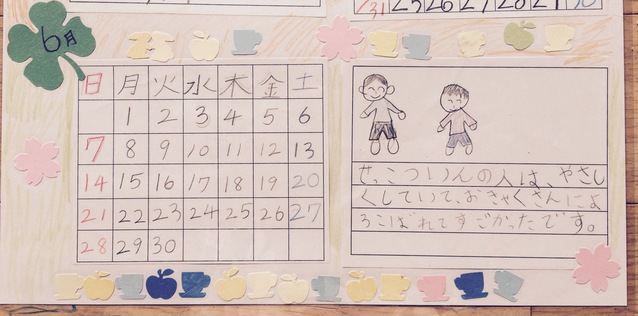 31 25 26 27 28 29 30
6月
日 月 火 水 木 金 土
1 2 3 4 5 6
7 8 9 10 11 12 13
14 15 16 17 18 19 20
21 22 23 24 25 26 27
28 29 30
せっこついんの人は、やさし
くしていて、おきゃくさんによ
ろこばれてすごかったです。